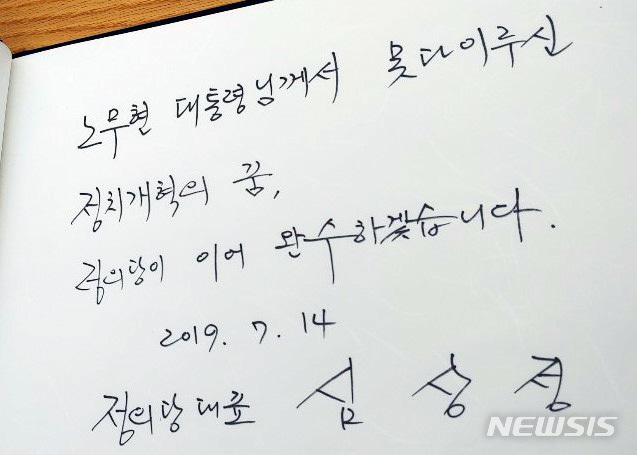 노무현 대통령님께서 못다이루신
정치개혁의 꿈,
정의당이 이어 완수하겠습니다.
2019. 7. 14
정의당 대표 심상정
NEWSIS